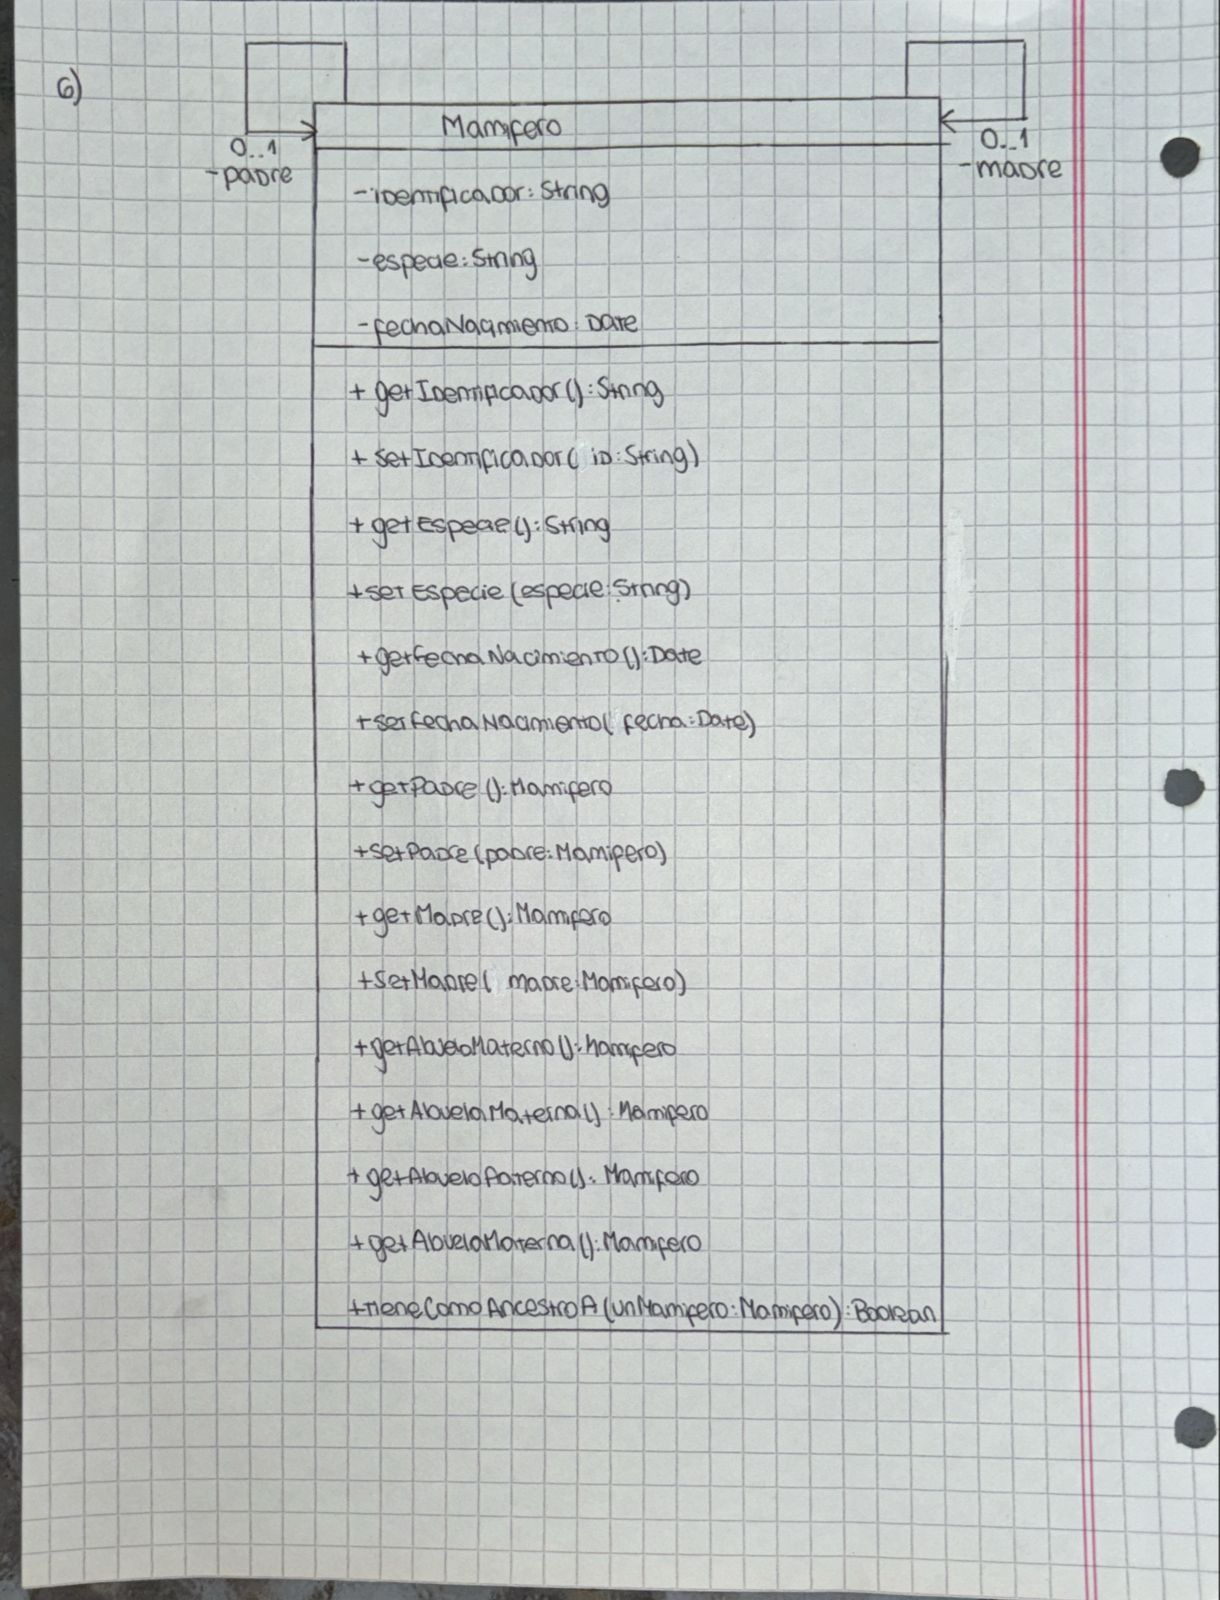 6)
Mamifero
0..1
-padre
0..1
-madre
-identificador: String
-especie: String
-fechaNacimiento: Date
+ getIdentificador(): String
+ setIdentificador( id: String)
+ getEspecie(): String
+setEspecie (especie: String)
+getFechaNacimiento(): Date
+setFechaNacimiento( fecha: Date)
+getPadre (): Mamifero
+setPadre (padre: Mamifero)
+getMadre(): Mamifero
+setMadre( madre: Mamifero)
+getAbueloMaterno(): Mamifero
+ getAbuelaMaterna(): Mamifero
+ getAbueloPaterno(): Mamifero
+ getAbuelaMaterna(): Mamifero
+tieneComoAncestroA (unMamifero: Mamifero): Boolean